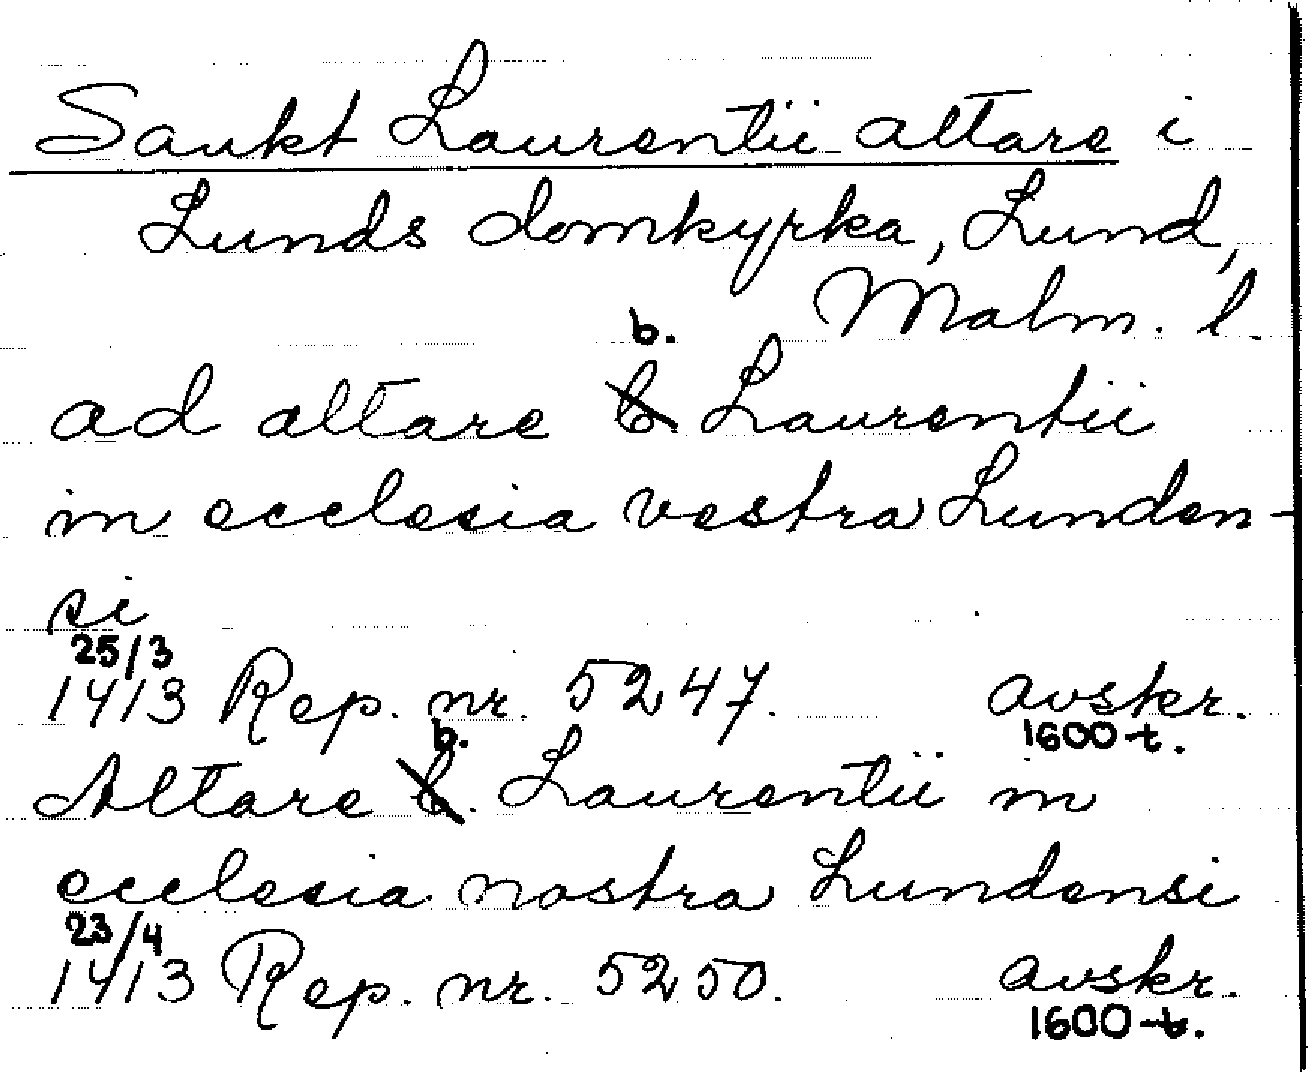 Sankt Laurentii altare i
Lunds domkyrka, Lund,
Malm. l.
b.
ad altare b Laurentii
in ecclesia vestra Lunden-
si
25/3
1413 Rep. nr. 5247. avskr.
1600-t.
b.
Altare b. Laurentii in
ecclesia nostra Lundensi
23/4
1413 Rep. nr. 5250. avskr.
1600-t.